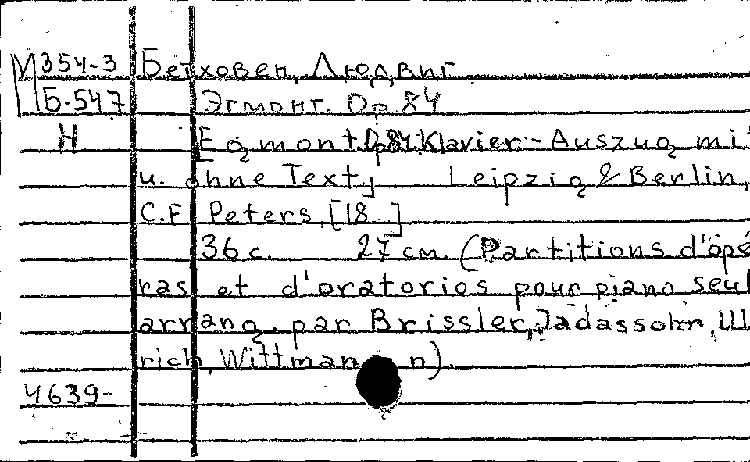 М 354-3 Бетховен, Людвиг
Б-547 Эгмонт. Op. 84
Н Egmont, Op. 84, Klavier-Auszug mi
u. ohne Text, Leipzig & Berlin,
C.F. Peters, [18 ]
36 с. 27 см. (Partitions d'opé
ras et d'oratorios pour piano seul
arrang. par Brissler, Jadassohn, Ul
rich, Wittman n)
4639-